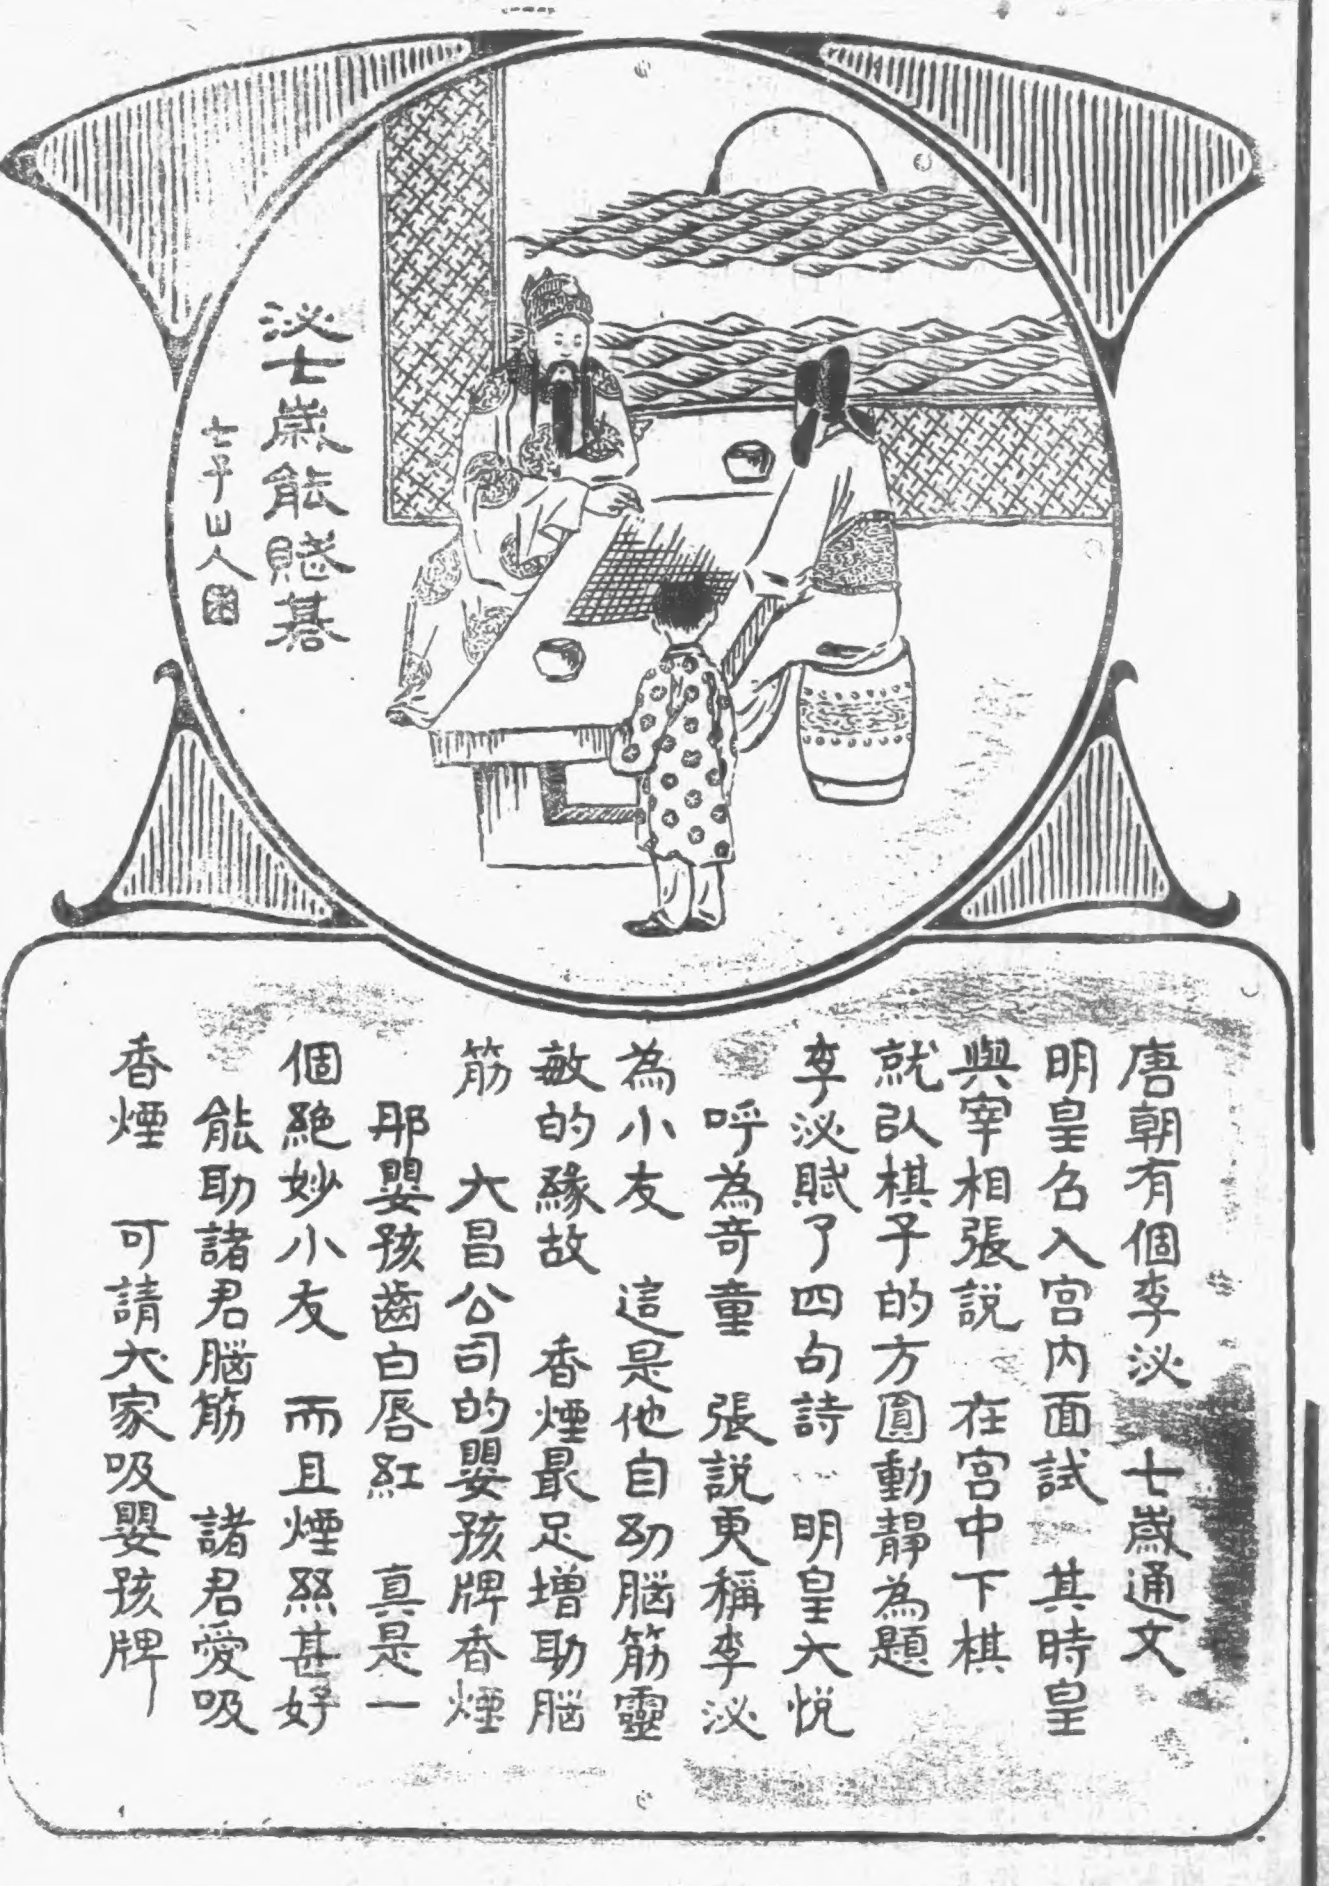 泌七歲能賦碁
七子山人
唐朝有個李泌 七歲通文
明皇召入宮內面試 其時皇
與宰相張説 在宮中下棋
就以棋子的方圓動靜為題
李泌賦了四句詩 明皇大悅
呼為奇童 張説更稱李泌
為小友 這是他自幼腦筋靈
敏的緣故 香煙最足增助腦
筋 大昌公司的嬰孩牌香煙
那嬰孩齒白唇紅 真是一
個絕妙小友 而且煙絲甚好
能助諸君腦筋 諸君愛吸
香煙 可請大家吸嬰孩牌